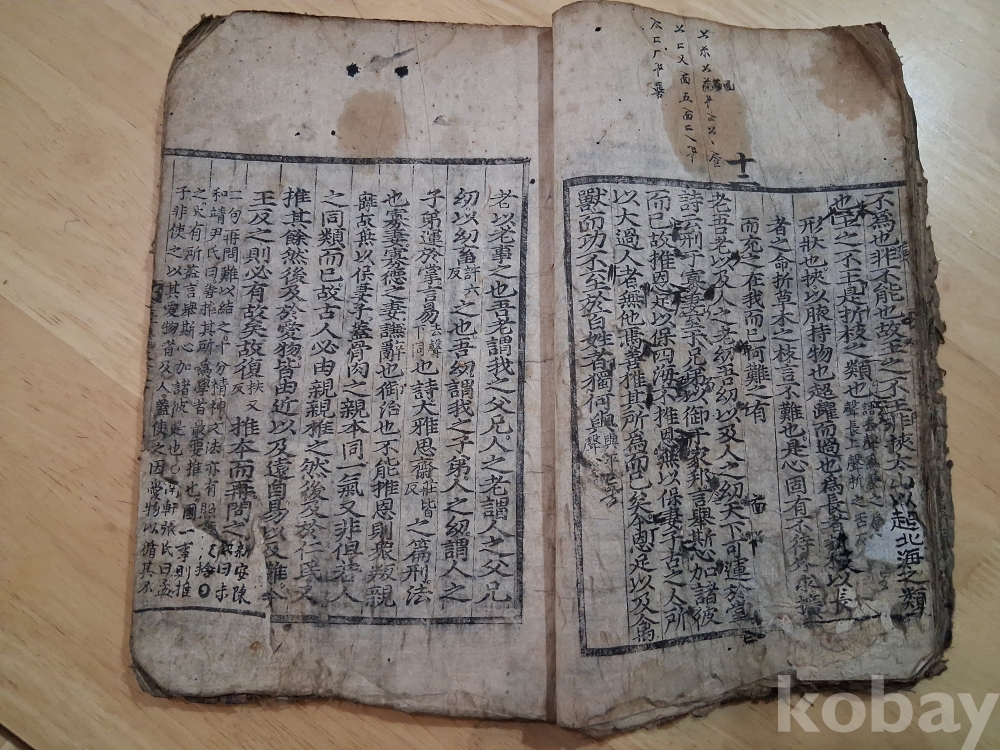 十二
不為也非不能也故王之不王非挾太山以超北海之類
也王之不王是折枝之類也
形狀也挾以腋持物也超躍而過也為長者折枝以長
者之命折草木之枝言不難也是心固有不待外求擴
而充之在我而已何難之有
老吾老以及人之老幼吾幼以及人之幼天下可運於掌
詩云刑于寡妻至于兄弟以御于家邦言舉斯心加諸彼
而已故推恩足以保四海不推恩無以保妻子古之人所
以大過人者無他焉善推其所為而已矣今恩足以及禽
獸而功不至於百姓者獨何與
老以老事之也吾老謂我之父兄人之老謂人之父兄
幼以幼畜許六反之也吾幼謂我之子弟人之幼謂人之
子弟運於掌言易去聲下同也詩大雅思齊莊皆反之篇刑法
也寡妻寡德之妻謙辭也御治也不能推恩則衆叛親
離故無以保妻子蓋骨肉之親本同一氣又非但若人
之同類而已故古人必由親親推之然後及於仁民又
推其餘然後及於愛物皆由近以及遠自易以及難今
王反之則必有故矣故復扶又反推本而再問之新安陳氏曰末
二句再問難以結之
和靖尹氏曰善推其所為學者最要推也因一事則推
之大有所益言舉斯心加諸彼是也南軒張氏曰孟
子非使之以其愛物者及人蓋使之因愛物以循其不
kobay